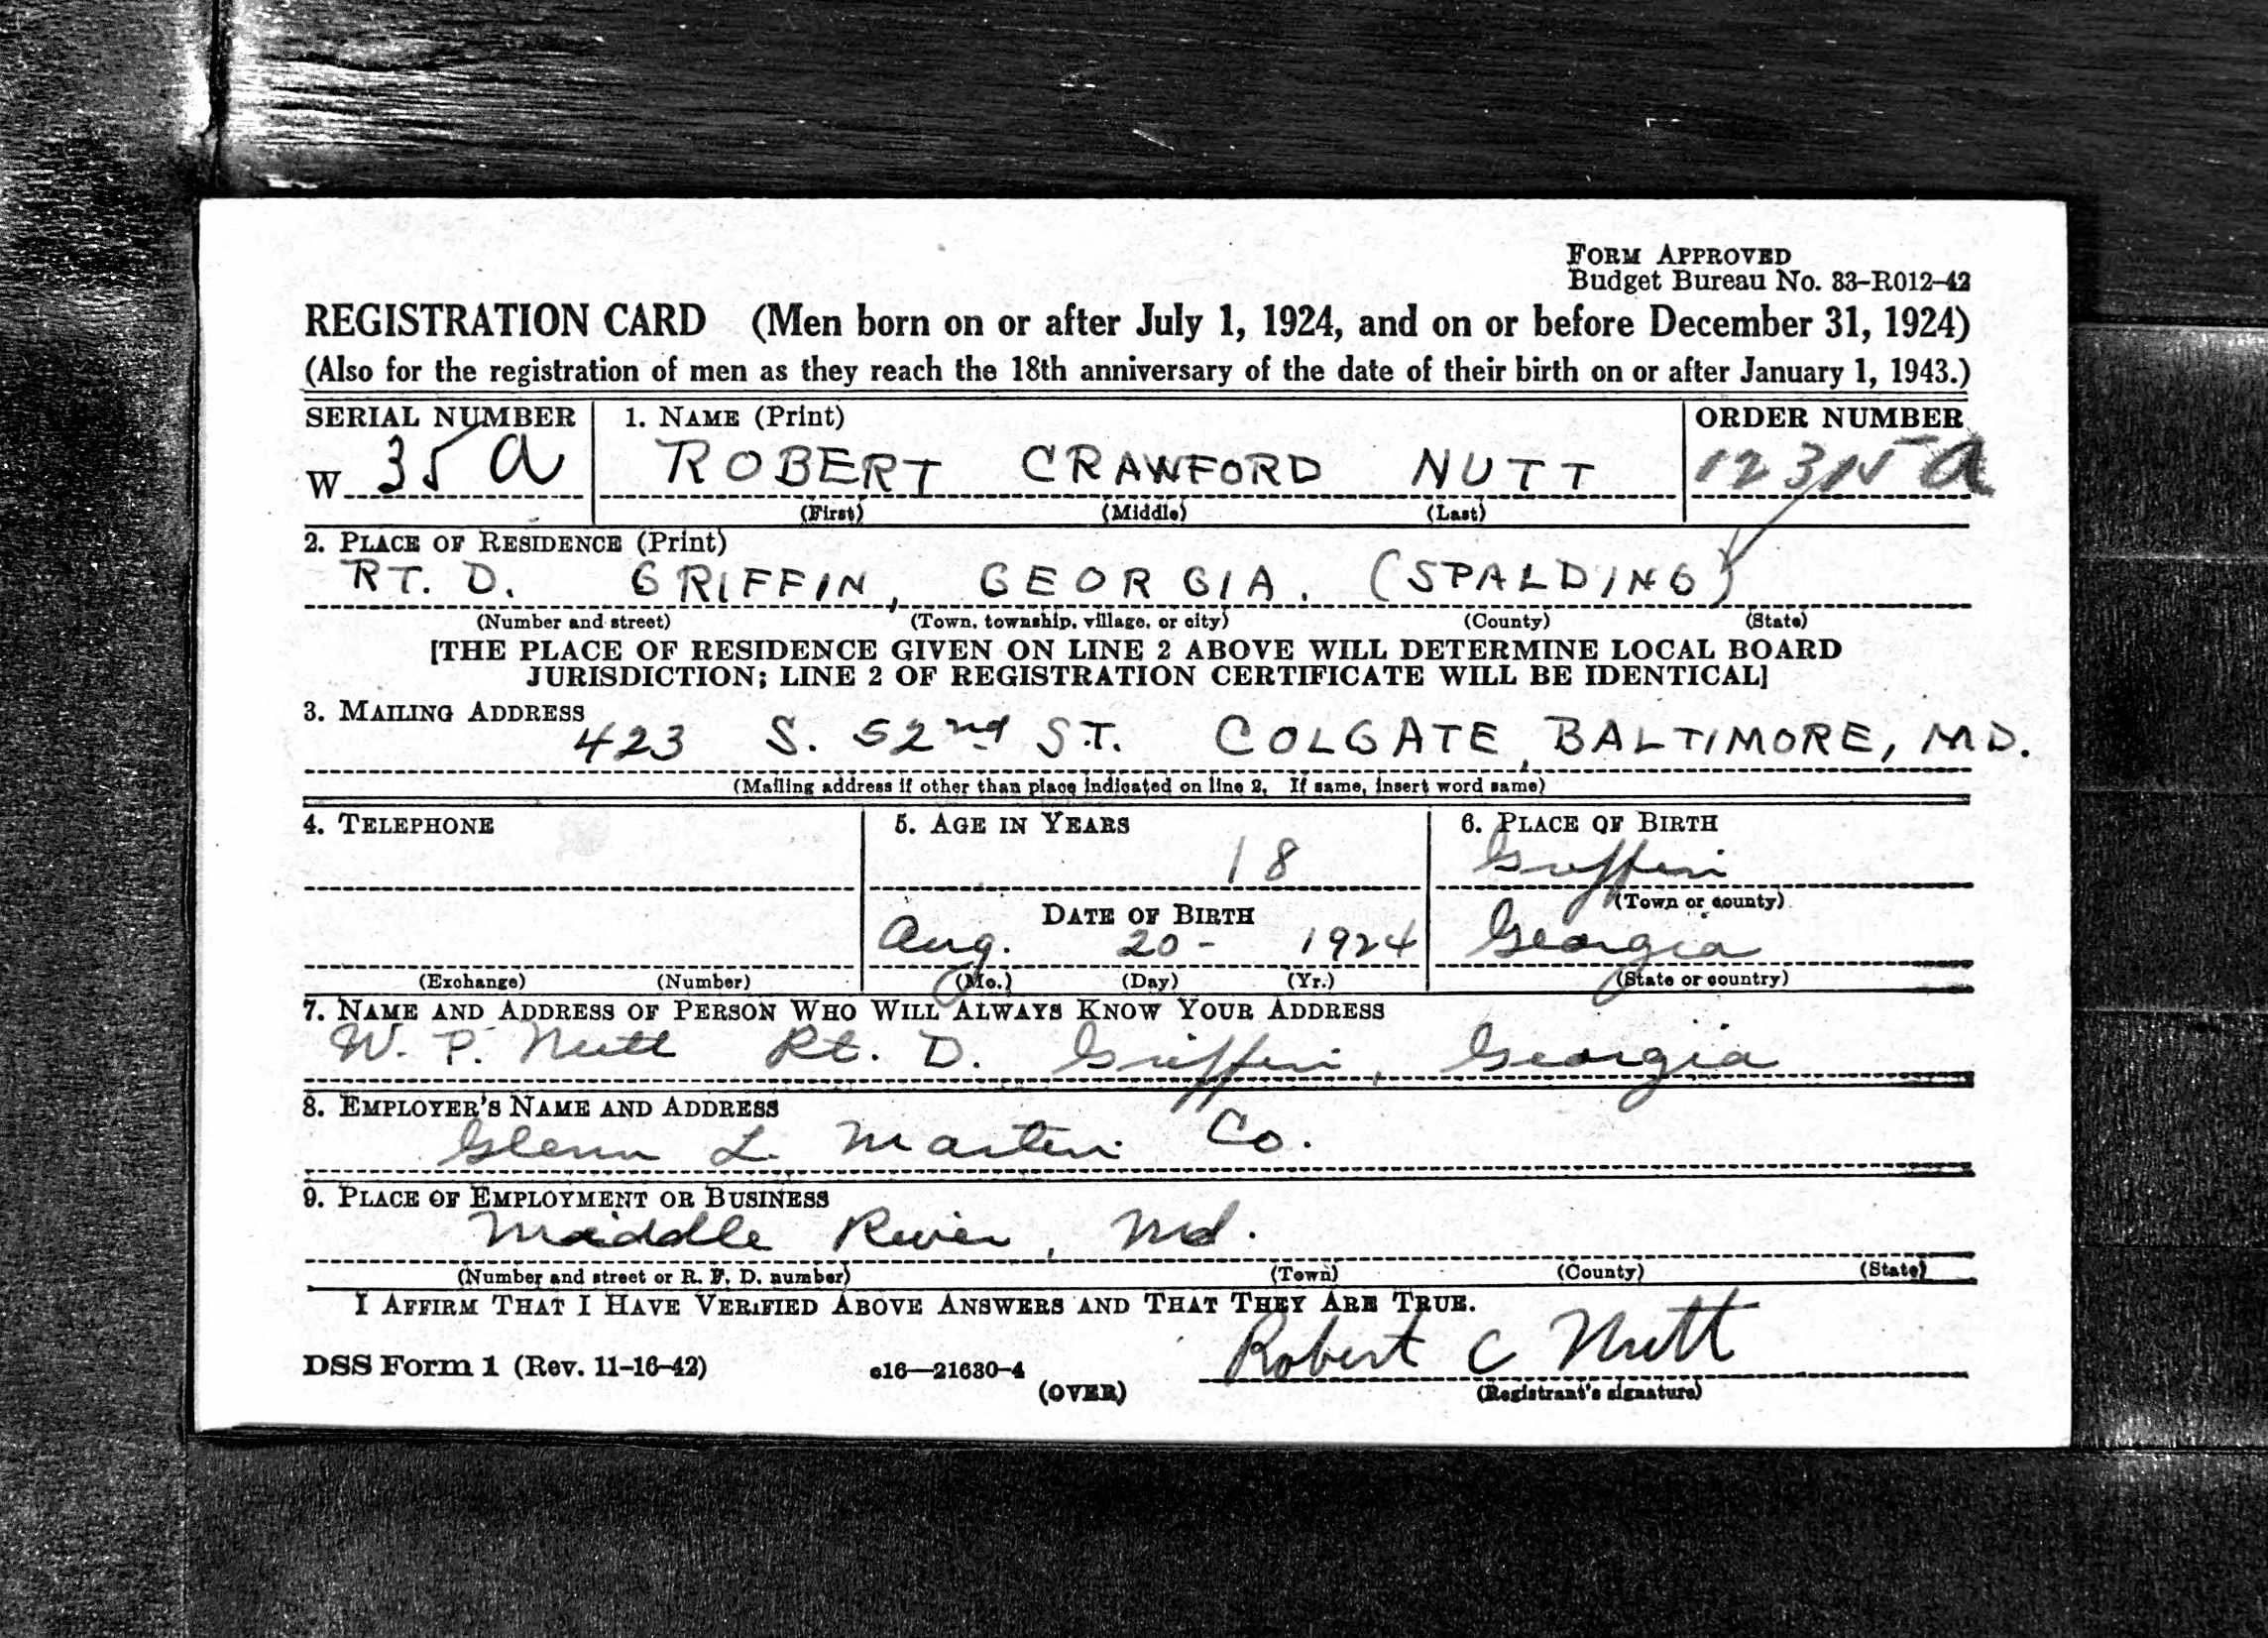 FORM APPROVED
Budget Bureau No. 33-R012-42
REGISTRATION CARD (Men born on or after July 1, 1924, and on or before December 31, 1924)
(Also for the registration of men as they reach the 18th anniversary of the date of their birth on or after January 1, 1943.)
SERIAL NUMBER 1. NAME (Print) ORDER NUMBER
W 35 a ROBERT CRAWFORD NUTT
(First) (Middle) (Last)
2. PLACE OF RESIDENCE (Print)
RT. D. GRIFFIN, GEORGIA. (SPALDING)
(Number and street) (Town, township, village, or city) (County) (State)
[THE PLACE OF RESIDENCE GIVEN ON LINE 2 ABOVE WILL DETERMINE LOCAL BOARD
JURISDICTION; LINE 2 OF REGISTRATION CERTIFICATE WILL BE IDENTICAL]
3. MAILING ADDRESS
423 S. 52nd ST. COLGATE, BALTIMORE, MD.
(Mailing address if other than place indicated on line 2. If same, insert word same)
4. TELEPHONE 5. AGE IN YEARS 6. PLACE OF BIRTH
18 Griffin
(Town or county)
DATE OF BIRTH
Aug. 20- 1924 Georgia
(Exchange) (Number) (Mo.) (Day) (Yr.) (State or country)
7. NAME AND ADDRESS OF PERSON WHO WILL ALWAYS KNOW YOUR ADDRESS
W. P. Nutt Rt. D. Griffin, Georgia
8. EMPLOYER'S NAME AND ADDRESS
Glenn L. Martin Co.
9. PLACE OF EMPLOYMENT OR BUSINESS
Middle River, Md.
(Number and street or R. F. D. number) (Town) (County) (State)
I AFFIRM THAT I HAVE VERIFIED ABOVE ANSWERS AND THAT THEY ARE TRUE.
Robert C Nutt
DSS Form 1 (Rev. 11-16-42) c16—21630-4 (OVER) (Registrant's signature)